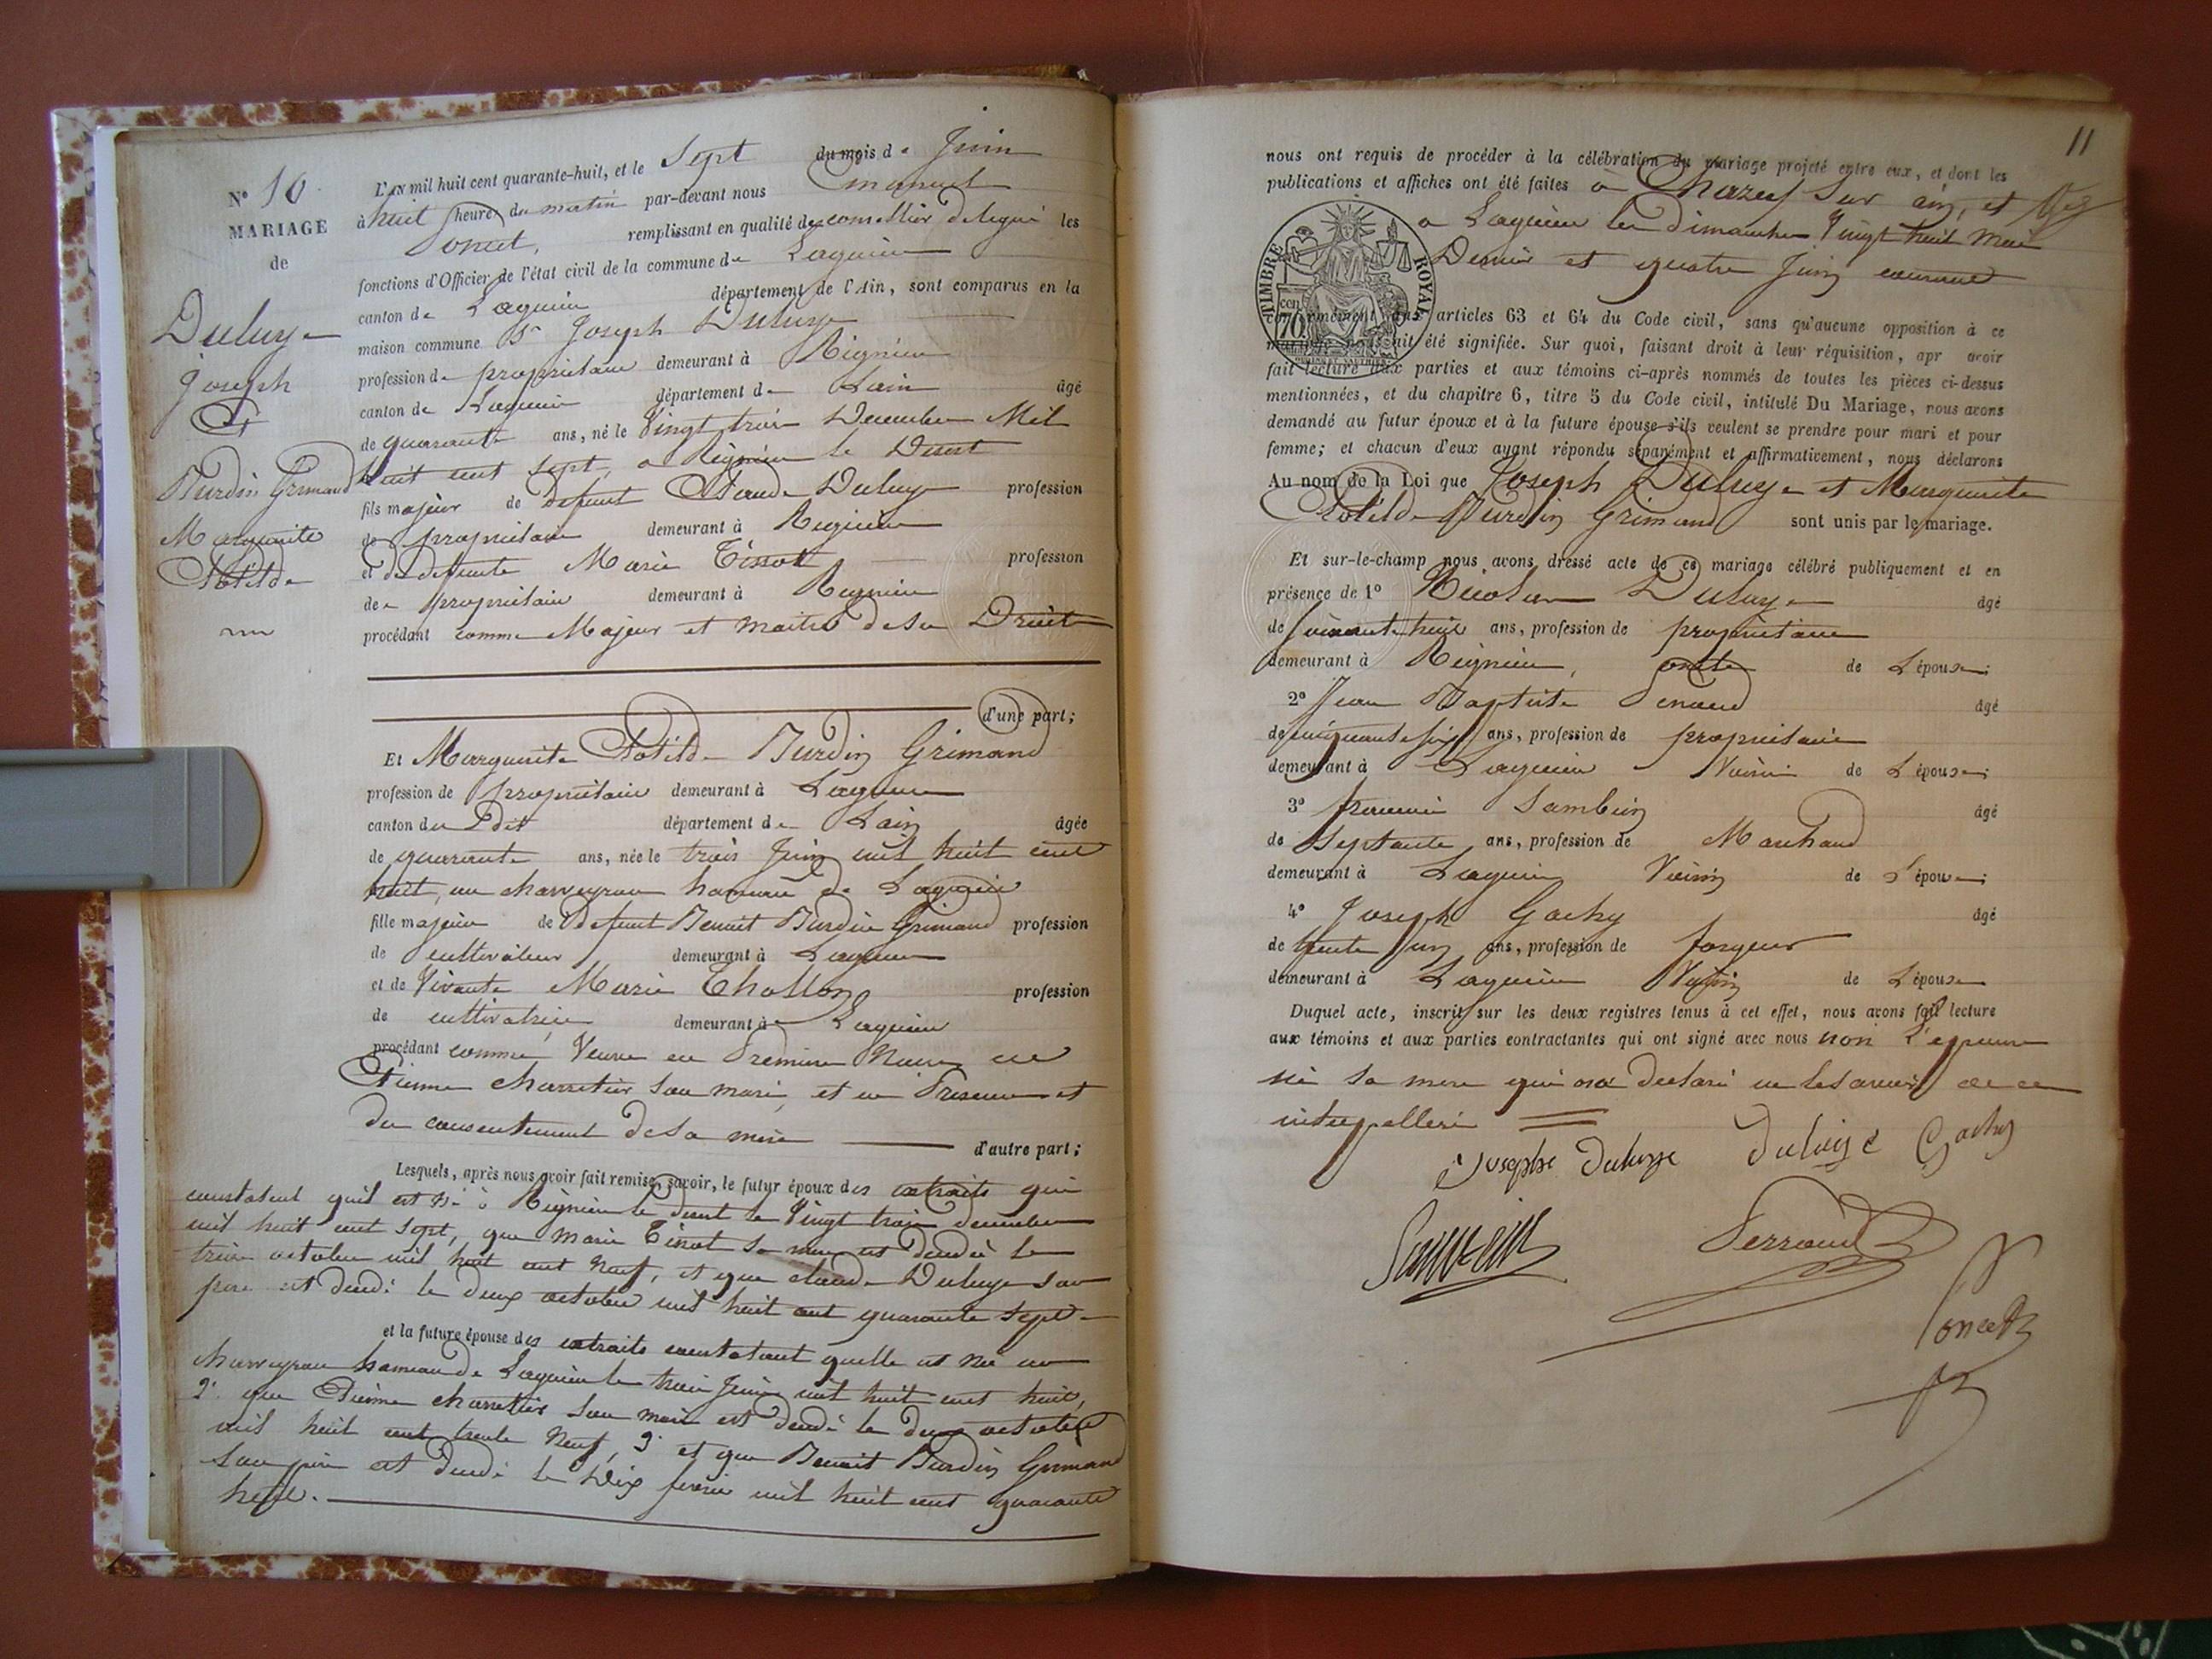 N° 10
MARIAGE
de
Duluye
Joseph
Et
Burdin Grimand
Marguerite
Clotilde
L'an mil huit cent quarante-huit, et le Sept du mois de Juin
à huit heure du matin par-devant nous Emanuel
Poncet, remplissant en qualité de conseiller delegué les
fonctions d'Officier de l'état civil de la commune de Lagnieu
canton de Lagnieu département de l'Ain, sont comparus en la
maison commune Sr Joseph Duluye
profession de propriétaire demeurant à Rignieu
canton de Lagnieu département de Lain âgé
de quarante ans, né le Vingt trois Decembre Mil
huit cent sept, a Rignieu le Desert
fils majeur de defunt Claude Duluye profession
de propriétaire demeurant à Rignieu
et de defunte Marie Tissot profession
de propriétaire demeurant à Rignieu
procédant comme Majeur et maitre de ses Droits
d'une part;
Et Marguerite Clotilde Burdin Grimand
profession de propriétaire demeurant à Lagnieu
canton du dit département de Lain âgée
de quarante ans, née le trois Juin mil huit cent
huit, au charveyron hameau de Lagnieu
fille majeure de defunt Benoit Burdin Grimand profession
de cultivateur demeurant à Lagnieu
et de Vivante Marie Chollon profession
de cultivatrice demeurant à Lagnieu
procédant comme Veuve en Premiere Noce de
Etienne charretier son mari, et en Presence et
du consentement de sa mere d'autre part;
Lesquels, après nous avoir fait remise, savoir, le futur époux des extraits qui
constatent quil est né à Rignieu le desert le Vingt trois decembre
mil huit cent sept, que Marie Tissot sa mere est décédé le
treize octobre mil huit cent neuf, et que claude Duluye son
pere est décédé le deux octobre mil huit cent quarante sept
et la future épouse des extraits constatant quelle est née au
charveyron hameau de Lagnieu le trois Juin mil huit cent huit,
2° que Etienne charretier son mari est décédé le deux octobre
mil huit cent trente Neuf, 3° et que Benoit Burdin Grimand
son pere est décédé le Dix fevrier mil huit cent quarante
huit.
11
nous ont requis de procéder à la célébration du mariage projeté entre eux, et dont les
publications et affiches ont été faites à Chazey Sur ain, et
a Lagnieu les dimanches Vingt huit Mai
Dernier et quatre Juin courant
TIMBRE ROYAL
70 cen
conformément aux articles 63 et 64 du Code civil, sans qu'aucune opposition à ce
mariage nous ait été signifiée. Sur quoi, faisant droit à leur réquisition, apr avoir
fait lecture aux parties et aux témoins ci-après nommés de toutes les pièces ci-dessus
mentionnées, et du chapitre 6, titre 5 du Code civil, intitulé Du Mariage, nous avons
demandé au futur époux et à la future épouse s'ils veulent se prendre pour mari et pour
femme; et chacun d'eux ayant répondu séparément et affirmativement, nous déclarons
Au nom de la Loi que Joseph Duluye et Marguerite
Clotilde Burdin Grimand sont unis par le mariage.
Et sur-le-champ nous avons dressé acte de ce mariage célébré publiquement et en
présence de 1° Nicolas Duluye âgé
de soixante huit ans, profession de propriétaire
demeurant à Rignieu, oncle de Lépoux;
2° Jean Baptiste âgé
de cinquante six ans, profession de propriétaire
demeurant à Lagnieu Voisin de Lépouse;
3° âgé
de Septante ans, profession de Marchand
demeurant à Lagnieu Voisin de Lépouse;
4° Joseph Gachy âgé
de trente un ans, profession de forgeur
demeurant à Lagnieu Voisin de Lépouse
Duquel acte, inscrit sur les deux registres tenus à cet effet, nous avons fait lecture
aux témoins et aux parties contractantes qui ont signé avec nous non L'epouse
ni sa mere qui ont declaré ne le savoir de ce
interpellés
Josephe Duluye Duluye Gachy
Perraud
Poncet